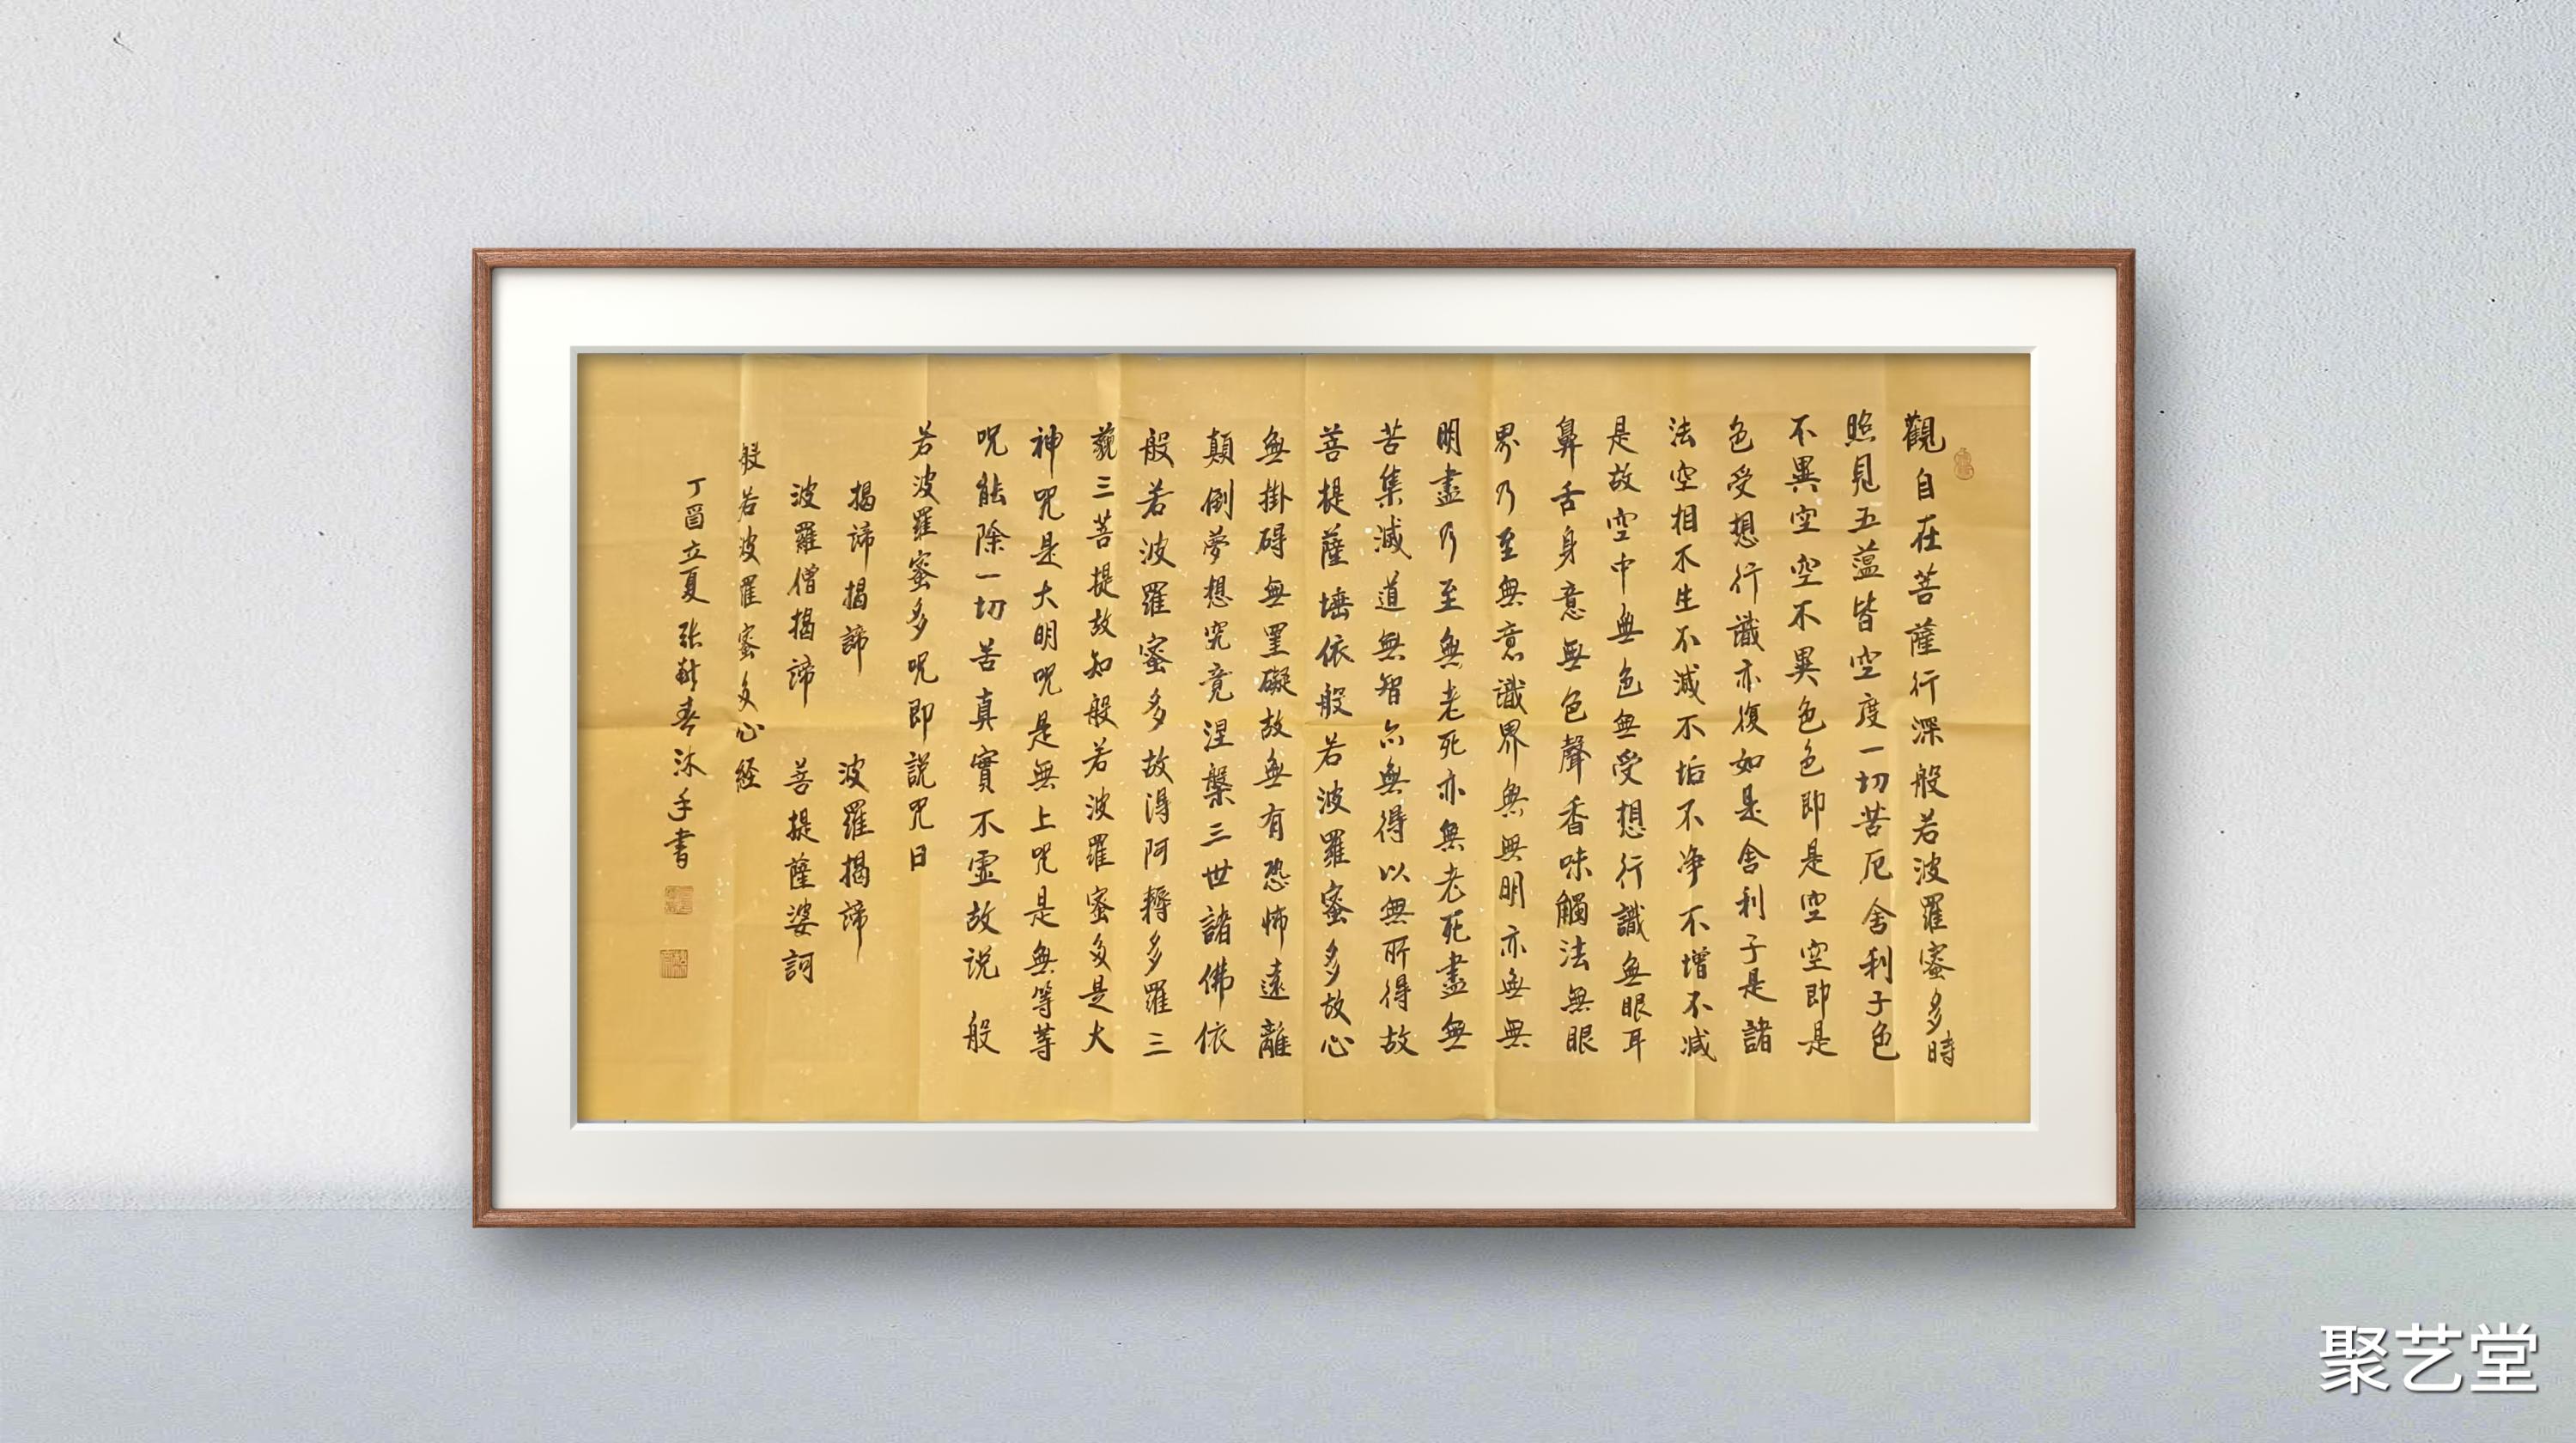 觀自在菩薩行深般若波羅蜜多時
照見五蕰皆空度一切苦厄舍利子色
不異空空不異色色即是空空即是
色受想行識亦復如是舍利子是諸
法空相不生不滅不垢不净不增不减
是故空中無色無受想行識無眼耳
鼻舌身意無色聲香味觸法無眼
界乃至無意識界無無明亦無無
明盡乃至無老死亦無老死盡無
苦集滅道無智亦無得以無所得故
菩提薩埵依般若波羅蜜多故心
無掛碍無罣礙故無有恐怖遠離
顛倒夢想究竟涅槃三世諸佛依
般若波羅蜜多故得阿耨多羅三
藐三菩提故知般若波羅蜜多是大
神咒是大明咒是無上咒是無等等
咒能除一切苦真實不虛故説般
若波羅蜜多咒即説咒曰
揭諦揭諦 波羅揭諦
波羅僧揭諦 菩提薩婆訶
般若波羅蜜多心経
丁酉立夏張春沐手書
聚艺堂